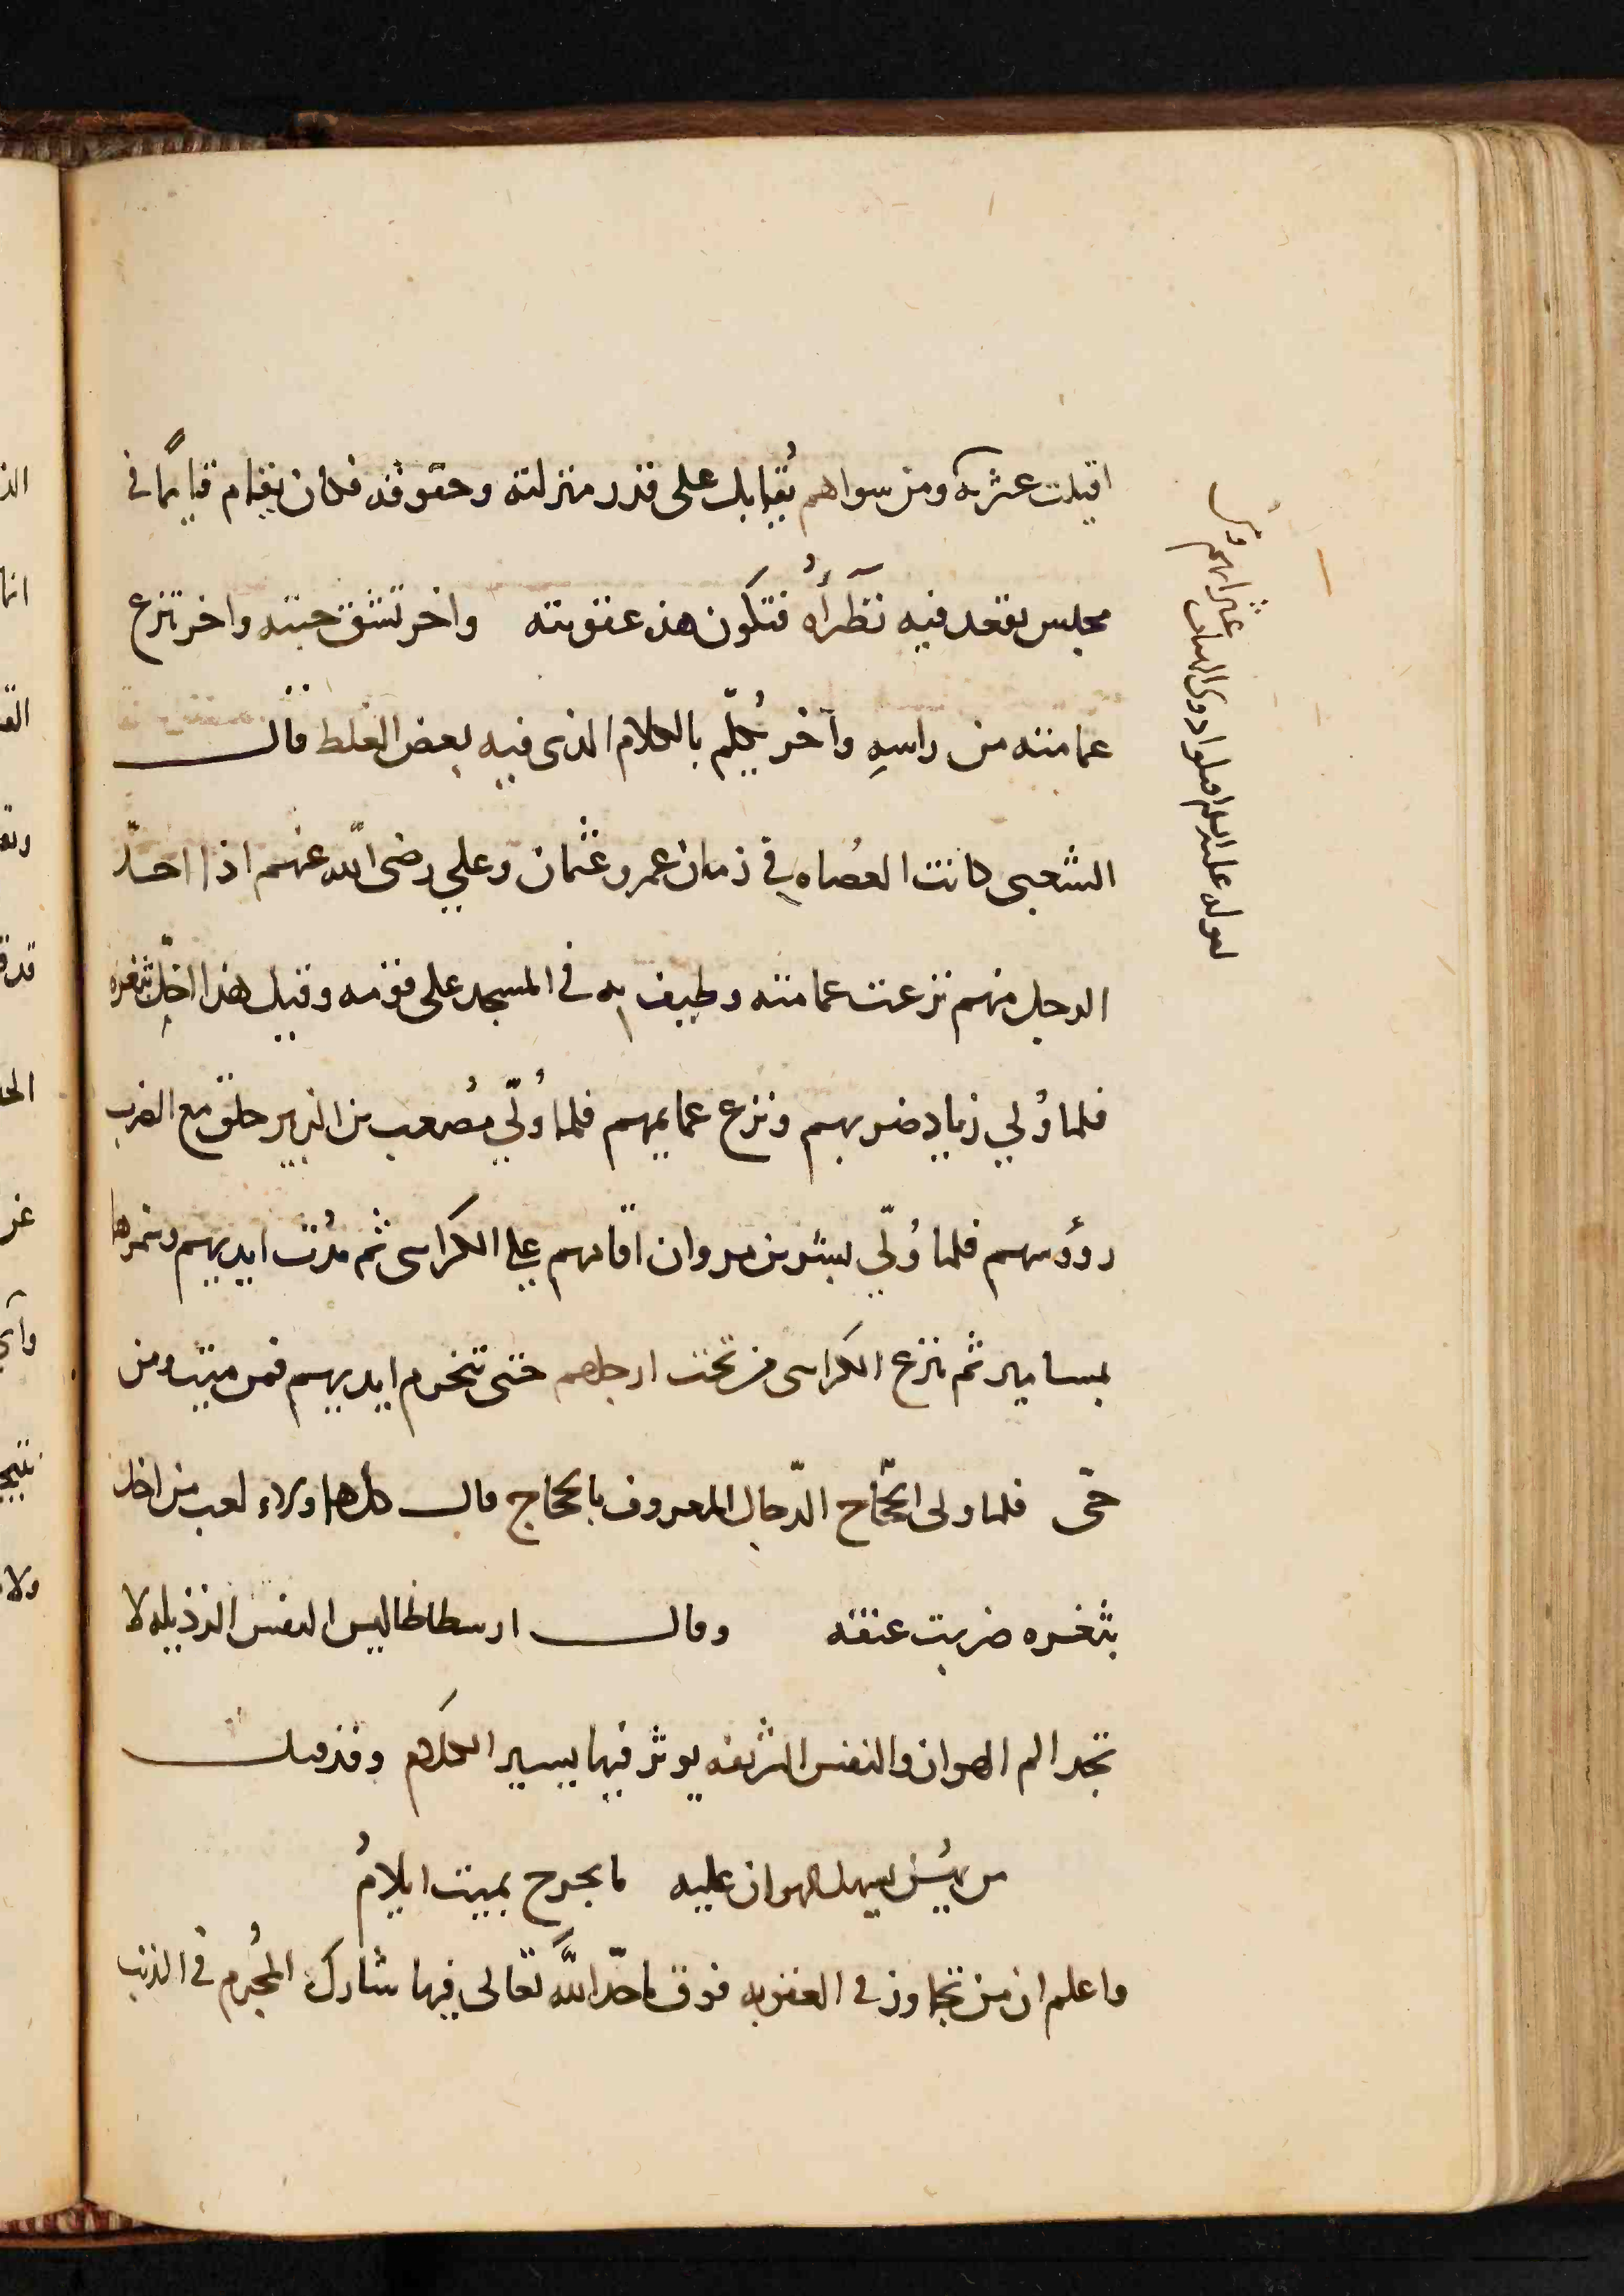 اقيلت عثرته ومن سواهم يُقابل على قدر منزلته وحقوقه فكان يقام قايمًا في
مجلس يقعد فيه نظرآؤُه فتكون هذه عقوبته واخر تشق جبته واخر تنزع
عمامته من راسهِ وآخر يُكلّم بالكلام الذى فيه بعض الغلط قال
الشعبى كانت العُصاه في زمان عمر وعثمان وعلي رضى الله عنهم اذا اخلّ
الرجل منهم نزعت عمامته وطيف به في المسجد على قومه وقيل هذا اخلّ بثغره
فلما وُلي زياد ضربهم ونزع عمايمهم فلما وُلّي مُصعب بن الزبير حلق مع الضرب
رؤوسهم فلما وُلّي بشر بن مروان اقامهم علي الكراسى ثم مُدّت ايديهم وسمرها
بمسامير ثم نزع الكراسى من تحت ارجلهم حتى تنخرم ايديهم فمن ميت ومن
حىّ فلما ولى الحجّاج الدّجال المعروف بالحجاج قال كل هاولاء لعب من اخل
بثغره ضربت عنقه وقال ارسطاطاليس النفس الرذيله لا
تجد الم الهوان والنفس الشريفه يوثر فيها يسير الكلام وقد قيل
من يهُن يسهل الهوان عليه ما بجرح بميت ايلامُ
واعلم ان من تجاوز في العقوبه فوق ما حدّ اللَّه تعالى فيها شارك المُجرم في الذنب
لقوله عليه السلام اقيلوا ذوى الهيات عثراتهم